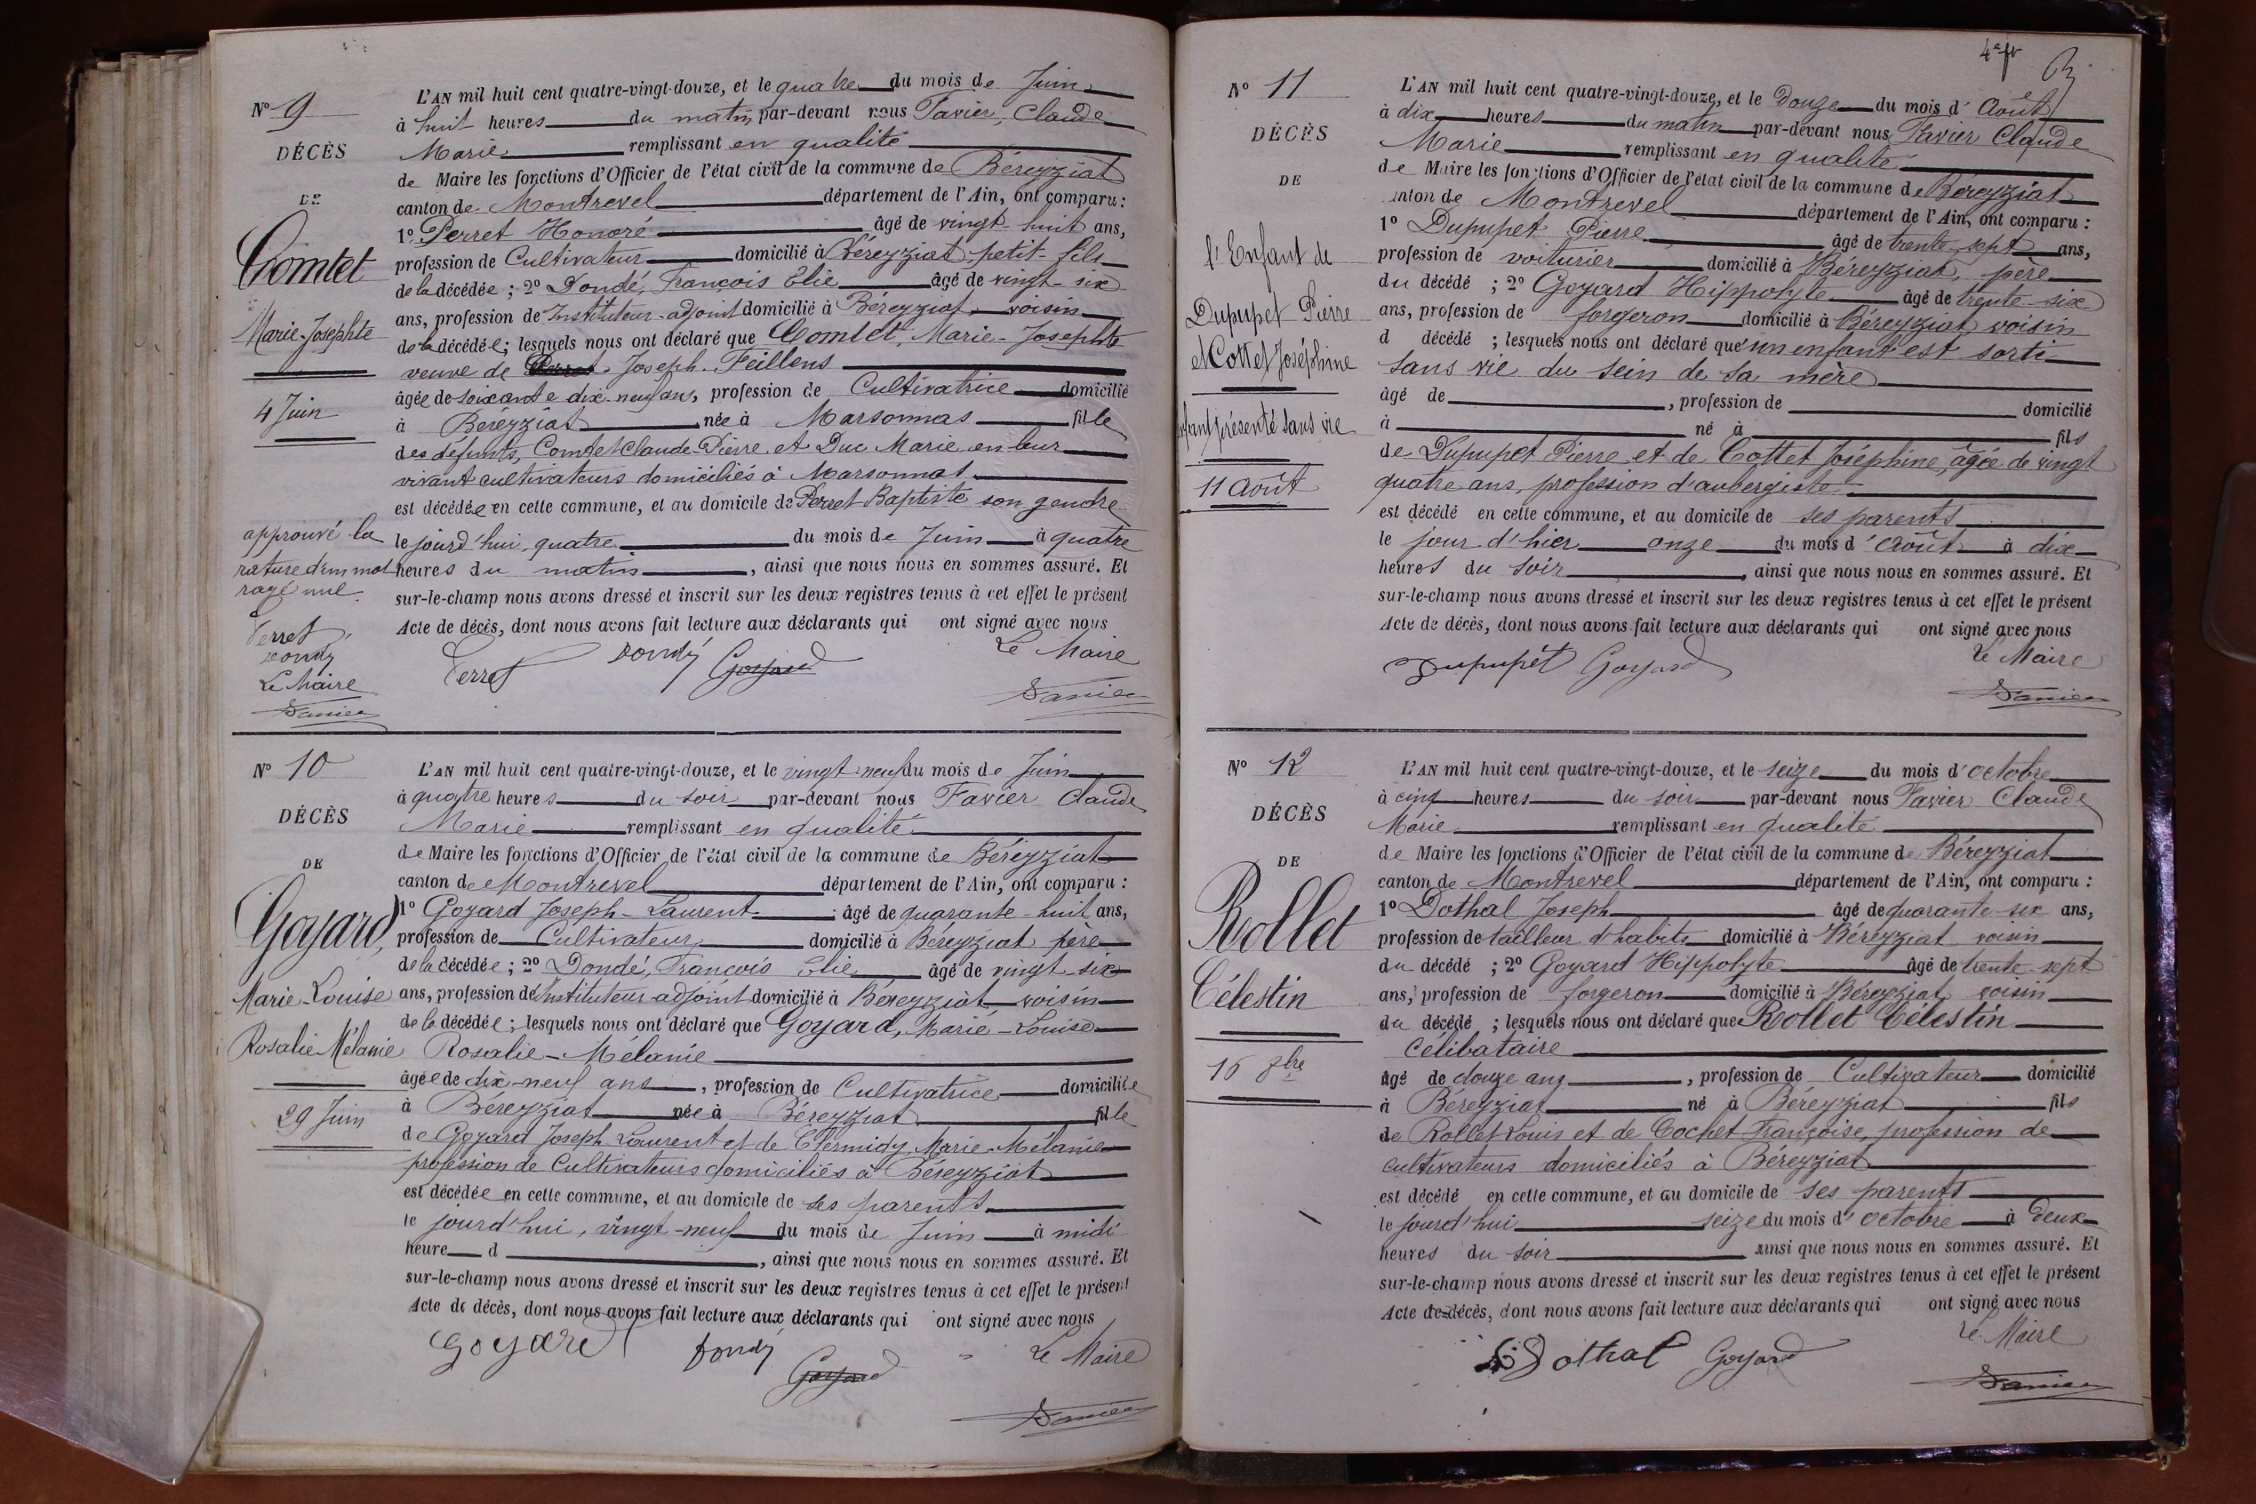 Nº 9
DÉCÈS
DE
Comtet
Marie-Josephte
4 Juin
approuvé la
rature d'un mot
rayé nul.
Perret
Dondé
Le Maire
Favier
L'AN mil huit cent quatre-vingt-douze, et le quatre du mois de Juin
à huit heures du matin par-devant nous Favier, Claude
Marie remplissant en qualité
de Maire les fonctions d'Officier de l'état civil de la commune de Béreyziat
canton de Montrevel département de l'Ain, ont comparu :
1º Perret Honoré âgé de vingt-huit ans,
profession de Cultivateur domicilié à Béreyziat, petit-fils
de la décédée ; 2º Dondé, François Elie âgé de vingt-six
ans, profession de Instituteur-adjoint domicilié à Béreyziat, voisin
de la décédée ; lesquels nous ont déclaré que Comtet, Marie-Josephte
veuve de Joseph Feillens
âgée de soixante dix-neuf ans, profession de Cultivatrice domicilié
à Béreyziat née à Marsonnas fille
des défunts, Comtet Claude-Pierre et Duc Marie en leur
vivant cultivateurs domiciliés à Marsonnas
est décédée en cette commune, et au domicile de Perret Baptiste son gendre
le jourd'hui, quatre du mois de Juin à quatre
heures du matin, ainsi que nous nous en sommes assuré. Et
sur-le-champ nous avons dressé et inscrit sur les deux registres tenus à cet effet le présent
Acte de décès, dont nous avons fait lecture aux déclarants qui ont signé avec nous
Le Maire
Perret Dondé Goyard
Favier
Nº 10
DÉCÈS
DE
Goyard,
Marie-Louise
Rosalie Mélanie
29 Juin
L'AN mil huit cent quatre-vingt-douze, et le vingt-neuf du mois de Juin
à quatre heures du soir par-devant nous Favier Claude
Marie remplissant en qualité
de Maire les fonctions d'Officier de l'état civil de la commune de Béreyziat
canton de Montrevel département de l'Ain, ont comparu :
1º Goyard Joseph-Laurent âgé de quarante-huit ans,
profession de Cultivateur domicilié à Béreyziat père
de la décédée ; 2º Dondé, François Elie âgé de vingt-six
ans, profession de Instituteur-adjoint domicilié à Béreyziat voisin
de la décédée ; lesquels nous ont déclaré que Goyard, Marie-Louise
Rosalie-Mélanie
âgée de dix-neuf ans, profession de Cultivatrice domiciliée
à Béreyziat née à Béreyziat fille
de Goyard Joseph Laurent et de Clermidy Marie-Mélanie
profession de Cultivateurs domiciliés à Béreyziat
est décédée en cette commune, et au domicile de ses parents
le jourd'hui, vingt-neuf du mois de Juin à midi
heure d , ainsi que nous nous en sommes assuré. Et
sur-le-champ nous avons dressé et inscrit sur les deux registres tenus à cet effet le présent
Acte de décès, dont nous avons fait lecture aux déclarants qui ont signé avec nous
Goyard Dondé Goyard Le Maire
Favier
4e ft
Nº 11
DÉCÈS
DE
l'Enfant de
Dupupet Pierre
et Cottet Joséphine
enfant présenté sans vie
11 Août
L'AN mil huit cent quatre-vingt-douze, et le douze du mois d'Août
à dix heures du matin par-devant nous Favier Claude
Marie remplissant en qualité
de Maire les fonctions d'Officier de l'état civil de la commune de Béreyziat
canton de Montrevel département de l'Ain, ont comparu :
1º Dupupet Pierre âgé de trente-sept ans,
profession de voiturier domicilié à Béreyziat, père
du décédé ; 2º Goyard Hippolyte âgé de trente-six
ans, profession de forgeron domicilié à Béreyziat voisin
d décédé ; lesquels nous ont déclaré qu'un enfant est sorti
sans vie du sein de sa mère
âgé de , profession de domicilié
à né à fils
de Dupupet Pierre et de Cottet Joséphine, âgée de vingt
quatre ans, profession d'aubergiste
est décédé en cette commune, et au domicile de ses parents
le jour d'hier onze du mois d'Août à dix
heures du soir, ainsi que nous nous en sommes assuré. Et
sur-le-champ nous avons dressé et inscrit sur les deux registres tenus à cet effet le présent
Acte de décès, dont nous avons fait lecture aux déclarants qui ont signé avec nous
Le Maire
Dupupet Goyard
Favier
Nº 12
DÉCÈS
DE
Rollet
Célestin
16 8bre
L'AN mil huit cent quatre-vingt-douze, et le seize du mois d'octobre
à cinq heures du soir par-devant nous Favier Claude
Marie remplissant en qualité
de Maire les fonctions d'Officier de l'état civil de la commune de Béreyziat
canton de Montrevel département de l'Ain, ont comparu :
1º Dothal Joseph âgé de quarante-six ans,
profession de tailleur d'habits domicilié à Béreyziat voisin
du décédé ; 2º Goyard Hippolyte âgé de trente-sept
ans, profession de forgeron domicilié à Béreyziat voisin
du décédé ; lesquels nous ont déclaré que Rollet Célestin
célibataire
âgé de douze ans, profession de Cultivateur domicilié
à Béreyziat né à Béreyziat fils
de Rollet Louis et de Cochet Françoise, profession de
cultivateurs domiciliés à Béreyziat
est décédé en cette commune, et au domicile de ses parents
le jourd'hui seize du mois d'octobre à deux
heures du soir ainsi que nous nous en sommes assuré. Et
sur-le-champ nous avons dressé et inscrit sur les deux registres tenus à cet effet le présent
Acte de décès, dont nous avons fait lecture aux déclarants qui ont signé avec nous
Le Maire
Dothal Goyard
Favier